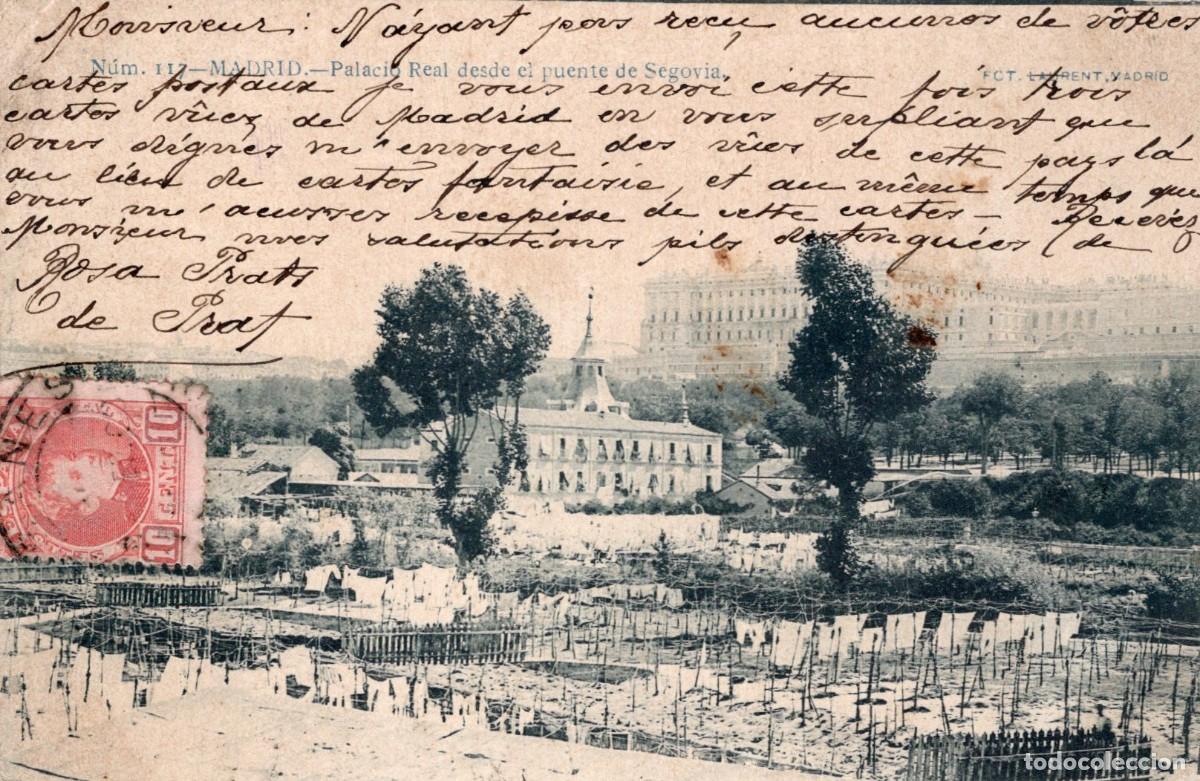 Monsieur: N'áyant pas reçu aucunos de vôtres
Núm. 117—MADRID.—Palacio Real desde el puente de Segovia.
FOT. LAURENT, MADRID
cartes postaux je vous envoi cette fois trois
cartes vûez de Madrid en vous surpliant que
vous dígnies m'envoyer des vûes de cette pays lá
au lieu de cartes fantaisie, et au même temps que
vous m'acusses recepisse de cette cartes — Recevez
Monsieur mes salutations plis distinguées (de
Rosa Prats
de Prat
10
10 CENT 10
todocoleccion